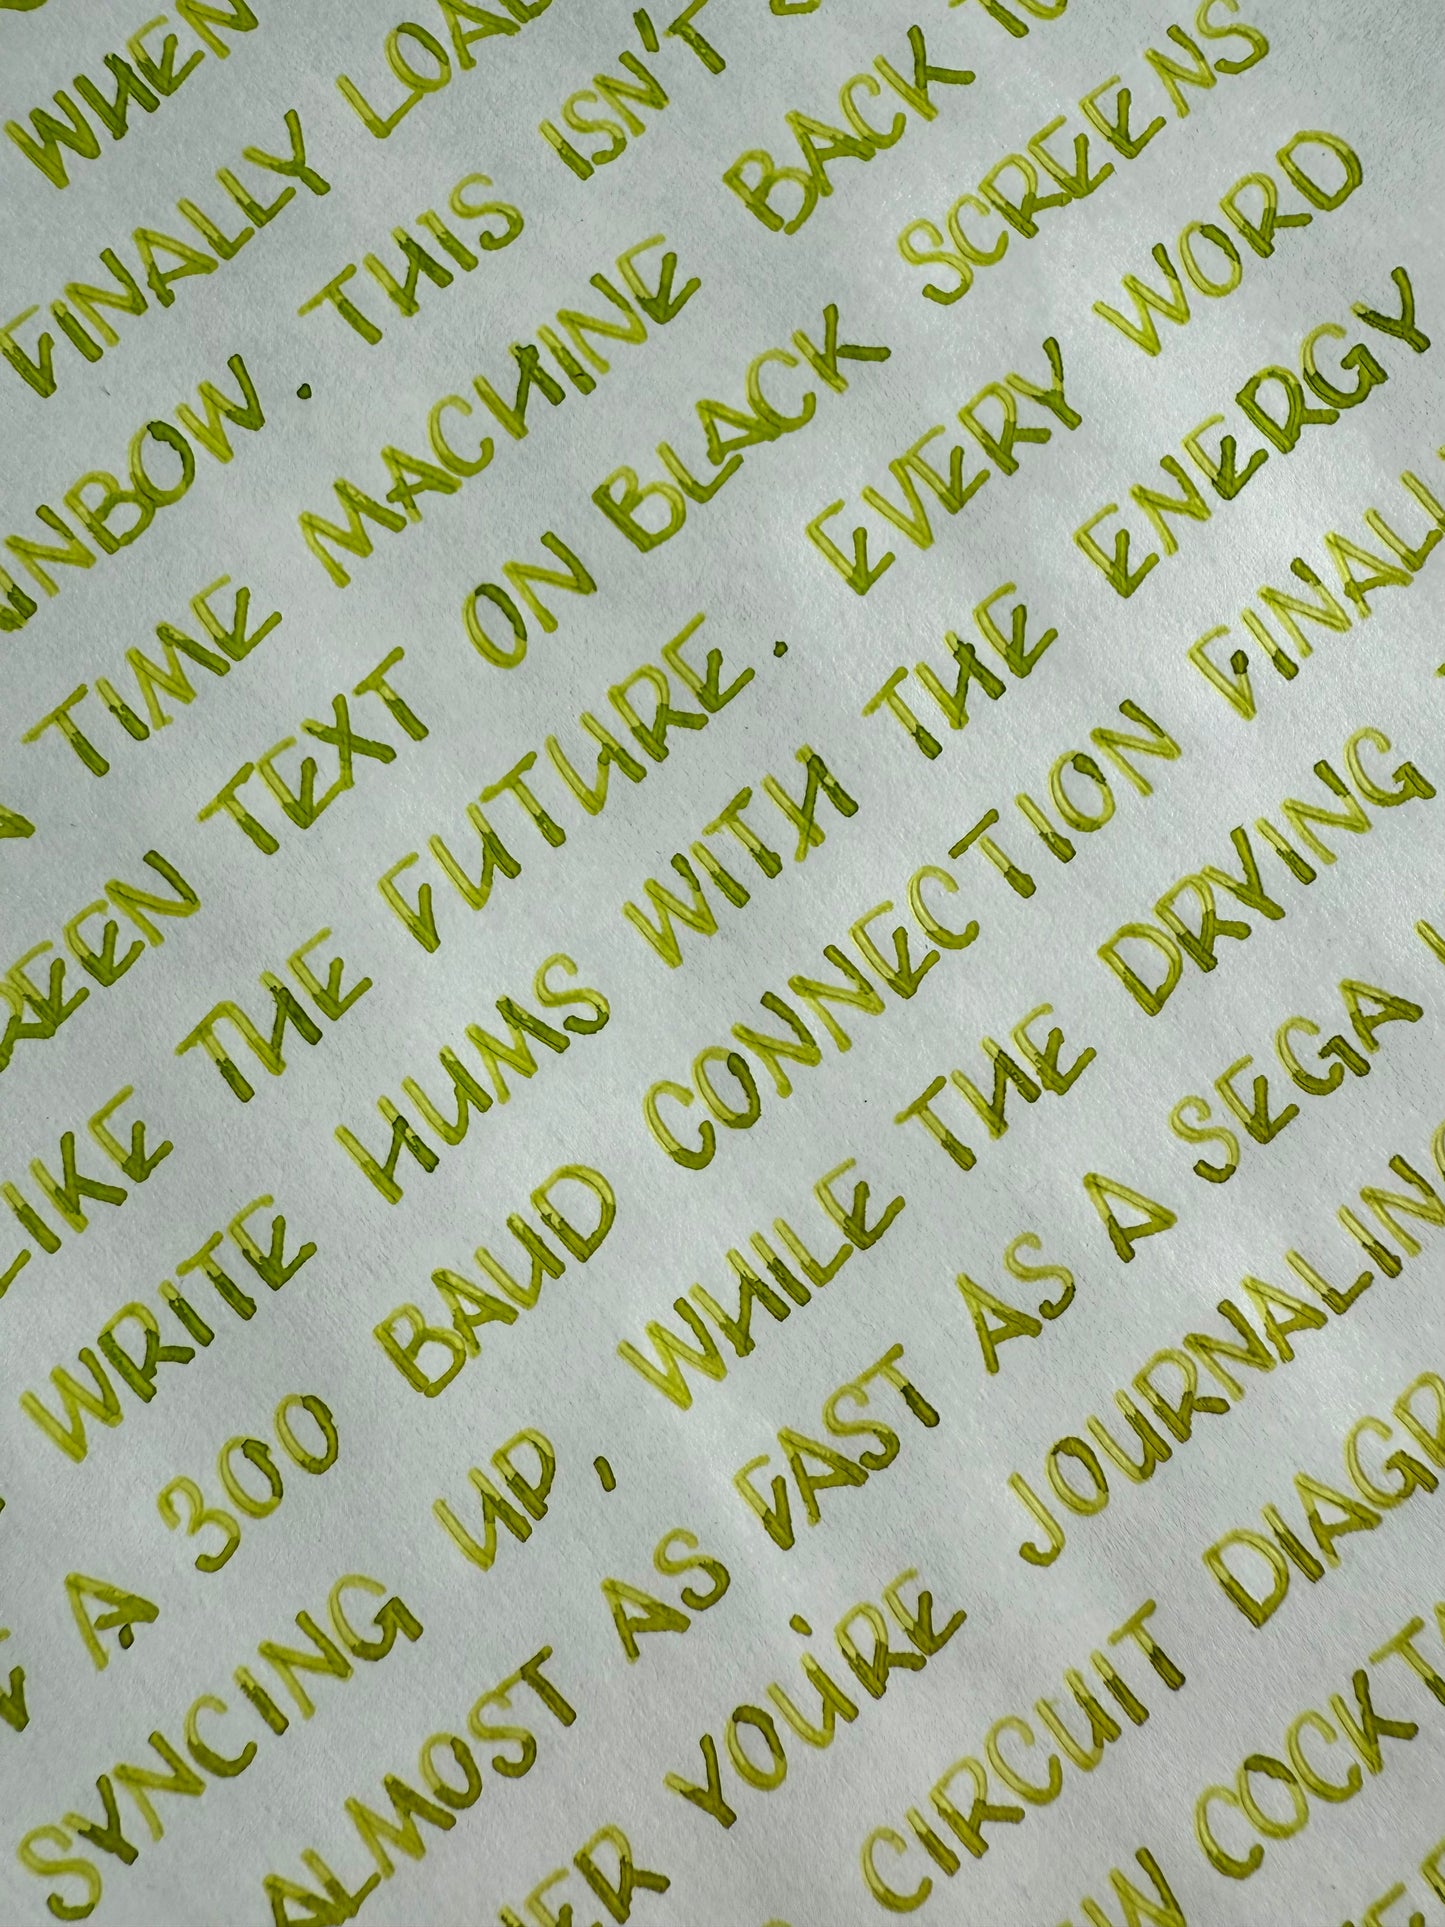 WHEN
FINALLY LOAD
INBOW. THIS ISN'T
TIME MACHINE BACK TO
REEN TEXT ON BLACK SCREENS
LIKE THE FUTURE. EVERY WORD
WRITE HUMS WITH THE ENERGY
A 300 BAUD CONNECTION FINALLY
SYNCING UP, WHILE THE DRYING
ALMOST AS FAST AS A SEGA
HER YOU'RE JOURNALING
CIRCUIT DIAGR
COCKTA